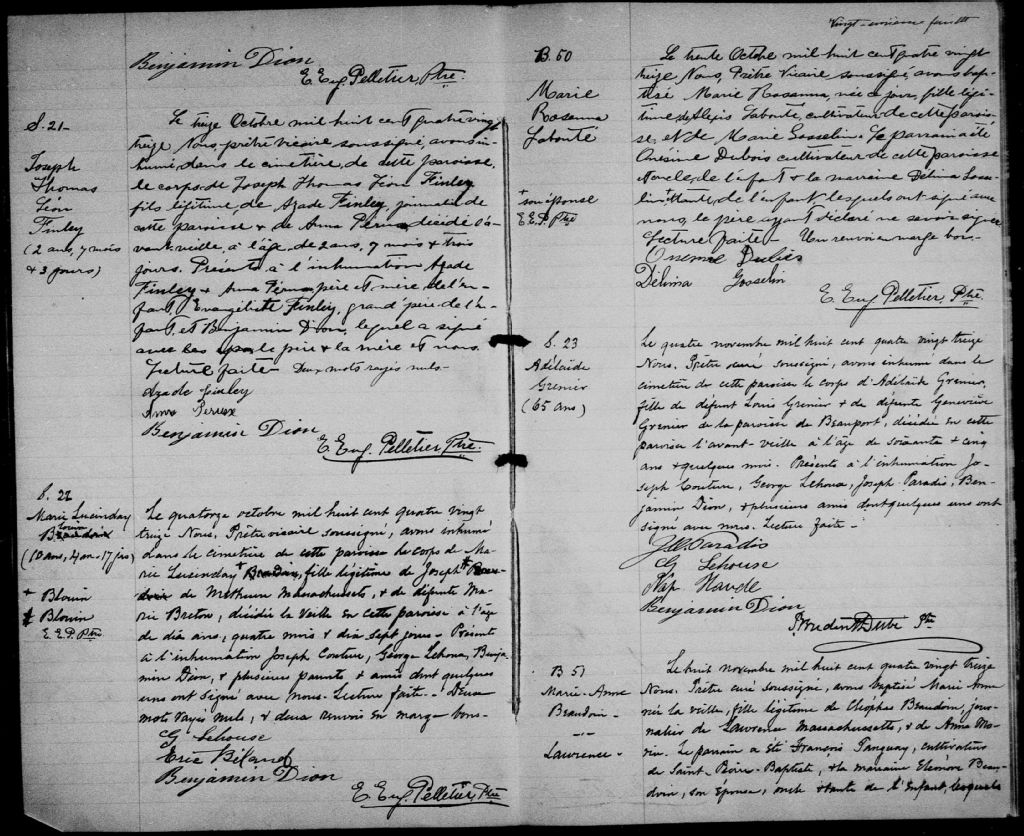 Benjamin Dion
E. Eug. Pelletier, Ptre.
S. 21-
Joseph
Thomas
Léon
Finley
(2 ans, 7 mois
& 3 jours)
Le treize Octobre mil huit cent quatre vingt
treize Nous, prêtre vicaire soussigné, avons in-
humé, dans le cimetière, de cette paroisse,
le corps, de Joseph Thomas Léon Finley
fils légitime, de Azade Finley, journalier de
cette paroisse & de Anna décédé l'a-
vant-veille, à l'âge de 2 ans, 7 mois & trois
jours. Présents à l'inhumation Azade
Finley & Anna père et mère de l'en-
fant, Evangéliste Finley, grand'père de l'en-
fant, et Benjamin Dion, lequel a signé
avec le père & la mère et nous.
Lecture faite - Deux mots rayés nuls-
Azade Finley
Anna
Benjamin Dion
E. Eug. Pelletier Ptre.
S. 22
Marie Lucinday
Blouin
(10 ans, 4 m. 17 jrs)
+ Blouin
‡ Blouin
E. E. P. Ptre
Le quatorze octobre mil huit cent quatre vingt
treize Nous, Prêtre vicaire soussigné, avons inhumé
dans le cimetière de cette paroisse le corps de Ma-
rie Lucinday + Beaudoin, fille légitime de Joseph ‡ Beau-
doin de Methuen Massachusetts, & de défunte Ma-
rie Breton, décédée la veille en cette paroisse à l'âge
de dix ans, quatre mois & dix sept jours - Présents
à l'inhumation Joseph Couture, George Lehoux, Benja-
min Dion, & plusieurs parents & amis dont quelques
uns ont signé avec nous. Lecture faite - Deux
mots rayés nuls, & deux renvois en marge bons-
G Lehouse
Eric Béland
Benjamin Dion
E. Eug. Pelletier, Ptre
Vingt-onzième feuillet
B. 50
Marie
Rosanna
Labonté
+
son épouse
E. E. P. Ptre
Le trente Octobre mil huit cent quatre vingt
treize Nous, Prêtre Vicaire soussigné, avons bap-
tisé Marie Rosanna, née ce jour, fille légi-
time d'Alexis Labonté, cultivateur de cette parois-
se, et de Marie Gosselin. Le parrain a été
Onésime Dubois cultivateur de cette paroisse
oncle, de l'enfant & la marraine Délima Gosse-
lin + tante, de l'enfant, lesquels ont signé avec
nous, le père ayant déclaré ne savoir signer
Lecture faite - Un renvoi en marge bon-
Délima Gosselin
E. Eug. Pelletier, Ptre.
S. 23
Adélaïde
Grenier
(65 ans)
Le quatre novembre mil huit cent quatre vingt treize
Nous, Prêtre curé soussigné, avons inhumé dans le
cimetière de cette paroisse le corps d'Adélaïde Grenier,
fille de défunt Louis Grenier & de défunte Geneviève
Grenier de la paroisse de Beauport, décédée en cette
paroisse l'avant-veille à l'âge de soixante & cinq
ans & quelques mois. Présents à l'inhumation Jo-
seph Couture, George Lehoux, Joseph Paradis, Ben-
jamin Dion, & plusieurs amis dont quelques uns ont
signé avec nous. Lecture faite -
Paradis
G Lehouse
Nap Nadeau
Benjamin Dion
Prudent Dubé Ptre
B 51
Marie-Anne
Beaudoin-
Lawrence-
Le huit novembre mil huit cent quatre vingt treize
Nous, Prêtre curé soussigné, avons baptisé Marie Anne
née la veille, fille légitime de Cléophas Beaudoin, jour-
nalier de Lawrence Massachusetts, & de Anna Mo-
rin. Le parrain a été François Tanguay, cultivateur
de Saint-Baptiste, & la marraine Eléonore Beau-
doin, son épouse, oncle & tante de l'Enfant, lesquels